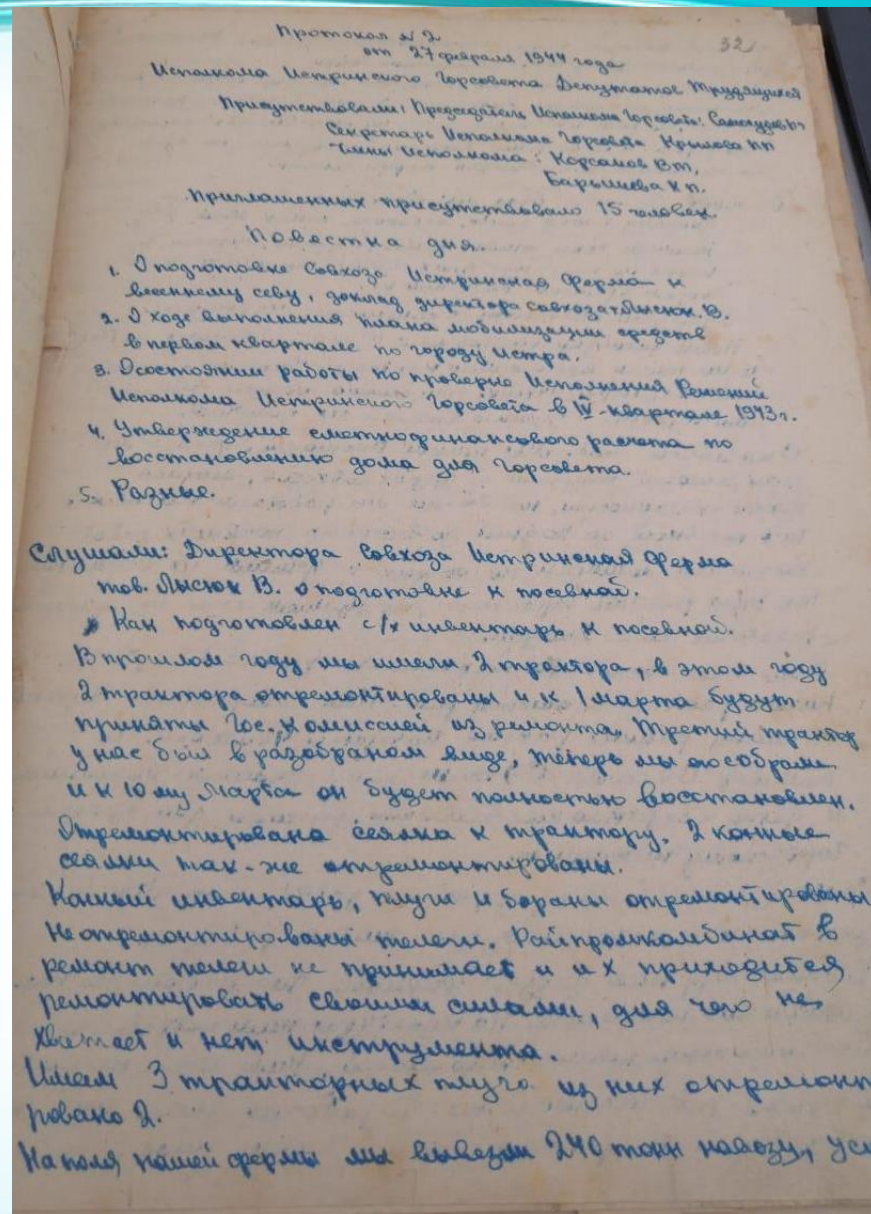 Протокол № 2
32
от 27 февраля 1944 года
Исполкома Истринского Горсовета Депутатов Трудящихся
Присутствовали: Председатель Исполкома Горсовета:
Секретарь Исполкома Горсовета Крылова НП
Члены Исполкома: Корсаков В.М.,
Барышева К.П.
Приглашенных присутствовало 15 человек.
Повестка дня.
1. О подготовке Совхоза Истринская Ферма к
весеннему севу, доклад директора совхоза т. Лысюк. В.
2. О ходе выполнения плана мобилизации средств
в первом квартале по городу Истра.
3. О состоянии работы по проверке Исполнения Решений
Исполкома Истринского Горсовета в IV-квартале 1943 г.
4. Утверждение сметнофинансового расчета по
восстановлению дома для Горсовета.
5. Разные.
Слушали: Директора Совхоза Истринская Ферма
тов. Лысюк В. о подготовке к посевной.
Как подготовлен с/х инвентарь к посевной.
В прошлом году мы имели 2 трактора, в этом году
2 трактора отремонтированы и к 1 марта будут
приняты Гос. Комиссией из ремонта. Третий трактор
у нас был в разобраном виде, теперь мы его собрали
и к 10 му Марта он будет полностью восстановлен.
Отремонтирована сеялка к трактору. 2 конные
сеялки так-же отремонтированы.
Конный инвентарь, плуги и бораны отремонтированы
Не отремонтированы телеги. Райпромкомбинат в
ремонт телеги не принимает и их приходится
ремонтировать своими силами, для чего не
хватает и нет инструмента.
Имеем 3 тракторных плуга из них отремонти
ровано 2.
На поля нашей фермы мы вывезли 240 тонн навозу,